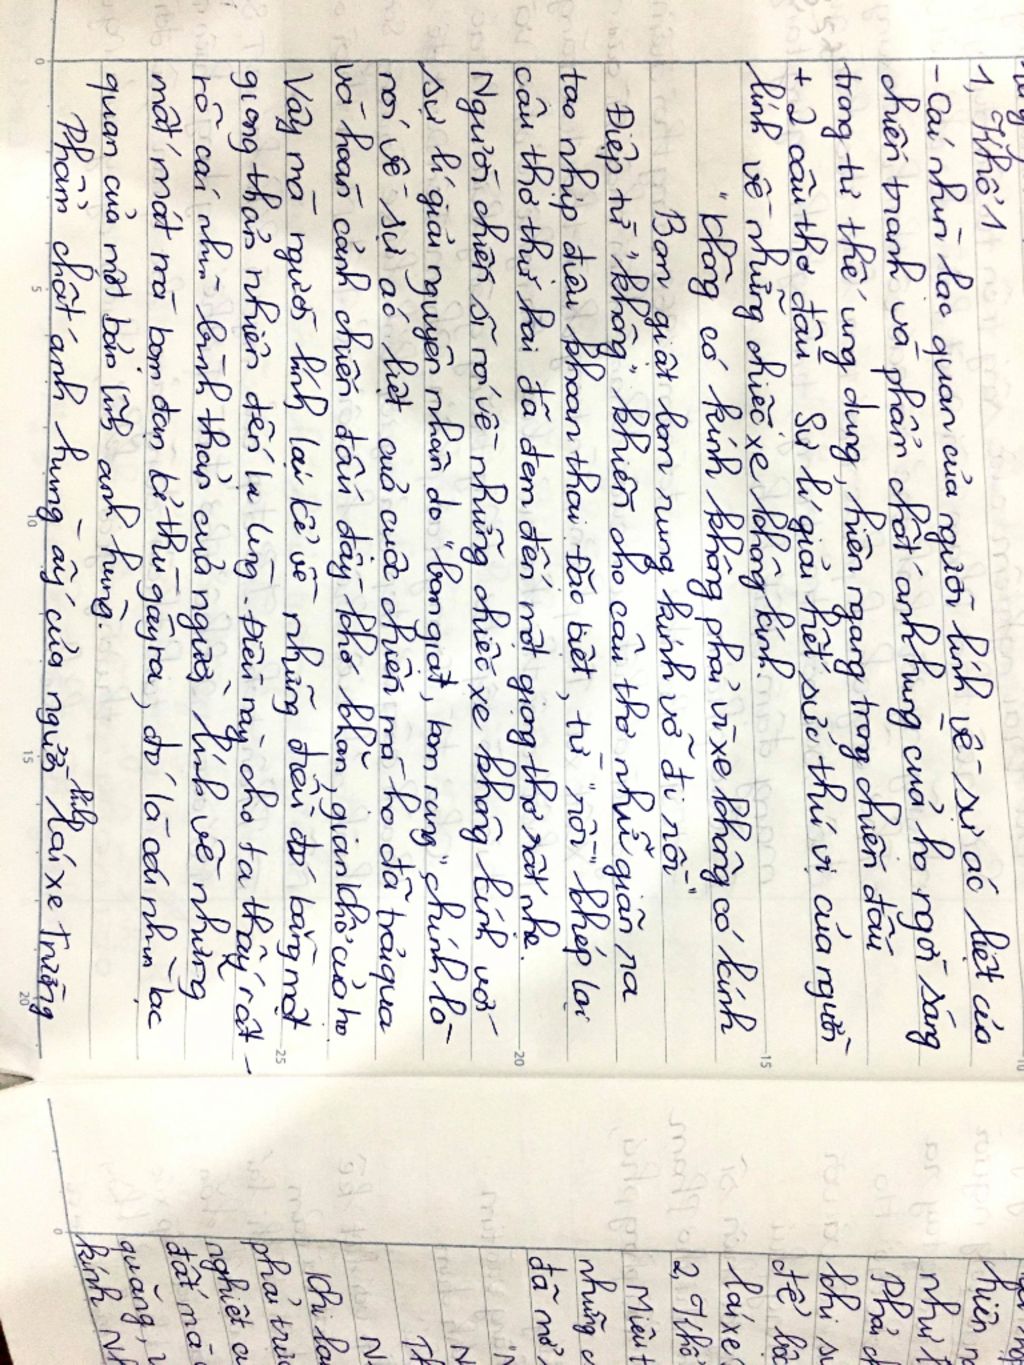 1, Khổ 1
- Cái nhìn lạc quan của người lính về sự ác liệt của
chiến tranh và phẩm chất anh hùng của họ ngời sáng
trong tư thế ung dung, hiên ngang trong chiến đấu
+ 2 câu thơ đầu: Sự lí giải hết sức thú vị của người
lính về những chiếc xe không kính.
"Không có kính không phải vì xe không có kính
Bom giật bom rung kính vỡ đi rồi"
Điệp từ "không" khiến cho câu thơ như giãn ra
tạo nhịp điệu khoan thai. Đặc biệt, từ "rồi" khép lại
câu thơ thứ hai đã đem đến một giọng thơ rất nhẹ.
Người chiến sĩ nói về những chiếc xe không kính với
sự lí giải nguyên nhân do "bom giật, bom rung" chính là
nói về sự ác liệt của cuộc chiến mà họ đã trải qua
và hoàn cảnh chiến đấu đầy khó khăn, gian khổ của họ
Vậy mà người lính lại kể về những điều đó bằng một
giọng thản nhiên đến lạ lùng. Điều này cho ta thấy rất
rõ cái nhìn bình thản của người lính về những
mất mát mà bom đạn kẻ thù gây ra, đó là cái nhìn lạc
quan của một bản lĩnh anh hùng.
Phẩm chất anh hùng ấy của người lính lái xe Trường
0
5
10
15
20
15
20
25
0
hiên n
như t
Phải
khi s
để b
lái xe
2, Khổ
Miêu t
những c
đã mở
"N
N
Th
N
Khi
phải trư
nghiệt
đất mà
quãng,
kính Nh